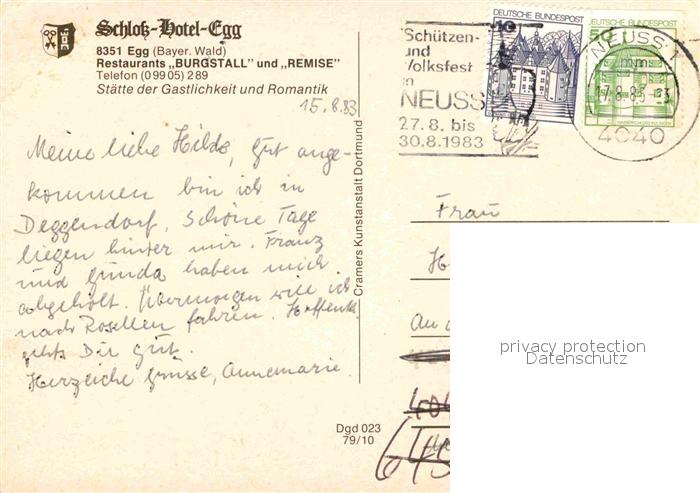 Schloß-Hotel-Egg
8351 Egg (Bayer. Wald)
Restaurants „BURGSTALL" und „REMISE"
Telefon (09905) 289
Stätte der Gastlichkeit und Romantik
15.8.83
Meine liebe Hilde, Gut ange-
kommen bin ich in
Deggendorf. Schöne Tage
liegen hinter mir. Franz
und Gunda haben mich
abgeholt. Übermorgen will ich
nach Rosellen fahren. Hoffentl.
gehts Dir gut.
Herzliche Grüsse, Annemarie.
Cramers Kunstanstalt Dortmund
Dgd 023
79/10
Schützen-
und
Volksfest
in
NEUSS
27.8. bis
30.8.1983
DEUTSCHE BUNDESPOST
10
DEUTSCHE BUNDESPOST
50
NEUSS 1
mm
17.8.83
4040
Frau
An d
privacy protection
Datenschutz